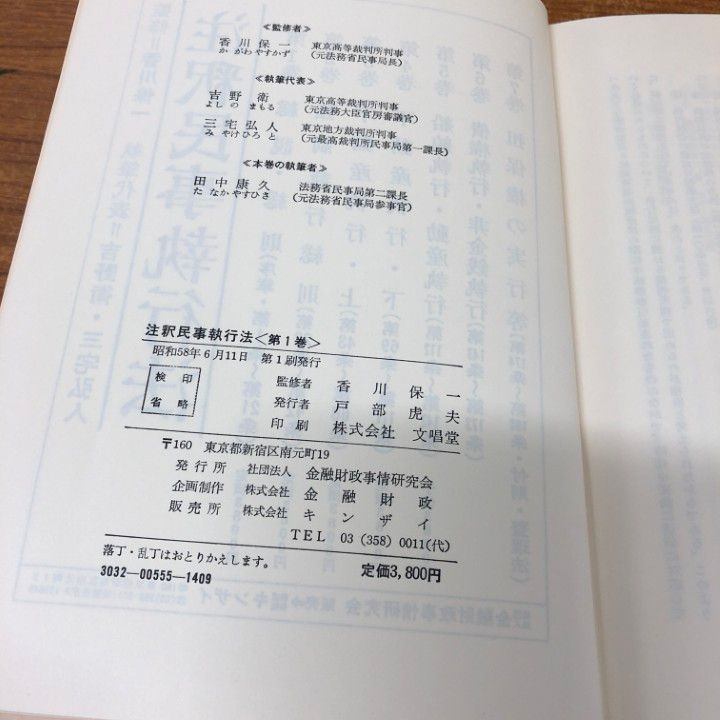 ≪監修者≫
香川保一 東京高等裁判所判事
かがわやすかず (元法務省民事局長)
≪執筆代表≫
吉野衛 東京高等裁判所判事
よしのまもる (元法務大臣官房審議官)
三宅弘人 東京地方裁判所判事
みやけひろと (元最高裁判所民事局第一課長)
≪本巻の執筆者≫
田中康久 法務省民事局第二課長
たなかやすひさ (元法務省民事局参事官)
注釈民事執行法<第1巻>
昭和58年6月11日 第1刷発行
検印
省略
監修者 香川保一
発行者 戸部虎夫
印刷 株式会社 文唱堂
〒160 東京都新宿区南元町19
発行所 社団法人 金融財政事情研究会
企画制作 株式会社 金融財政
販売所 株式会社 キンザイ
TEL 03 (358) 0011(代)
落丁・乱丁はおとりかえします。 定価3,800円
3032-00555-1409